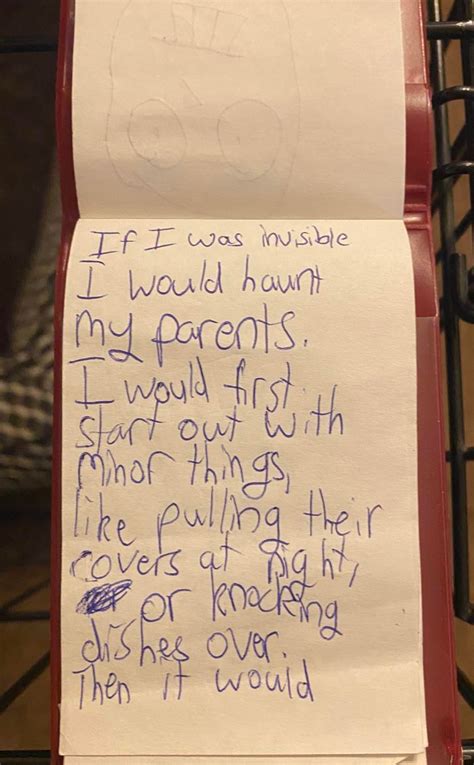 If I was invisible
I would haunt
my parents.
I would first
start out with
minor things,
like pulling their
covers at night,
or knocking
dishes over.
Then it would